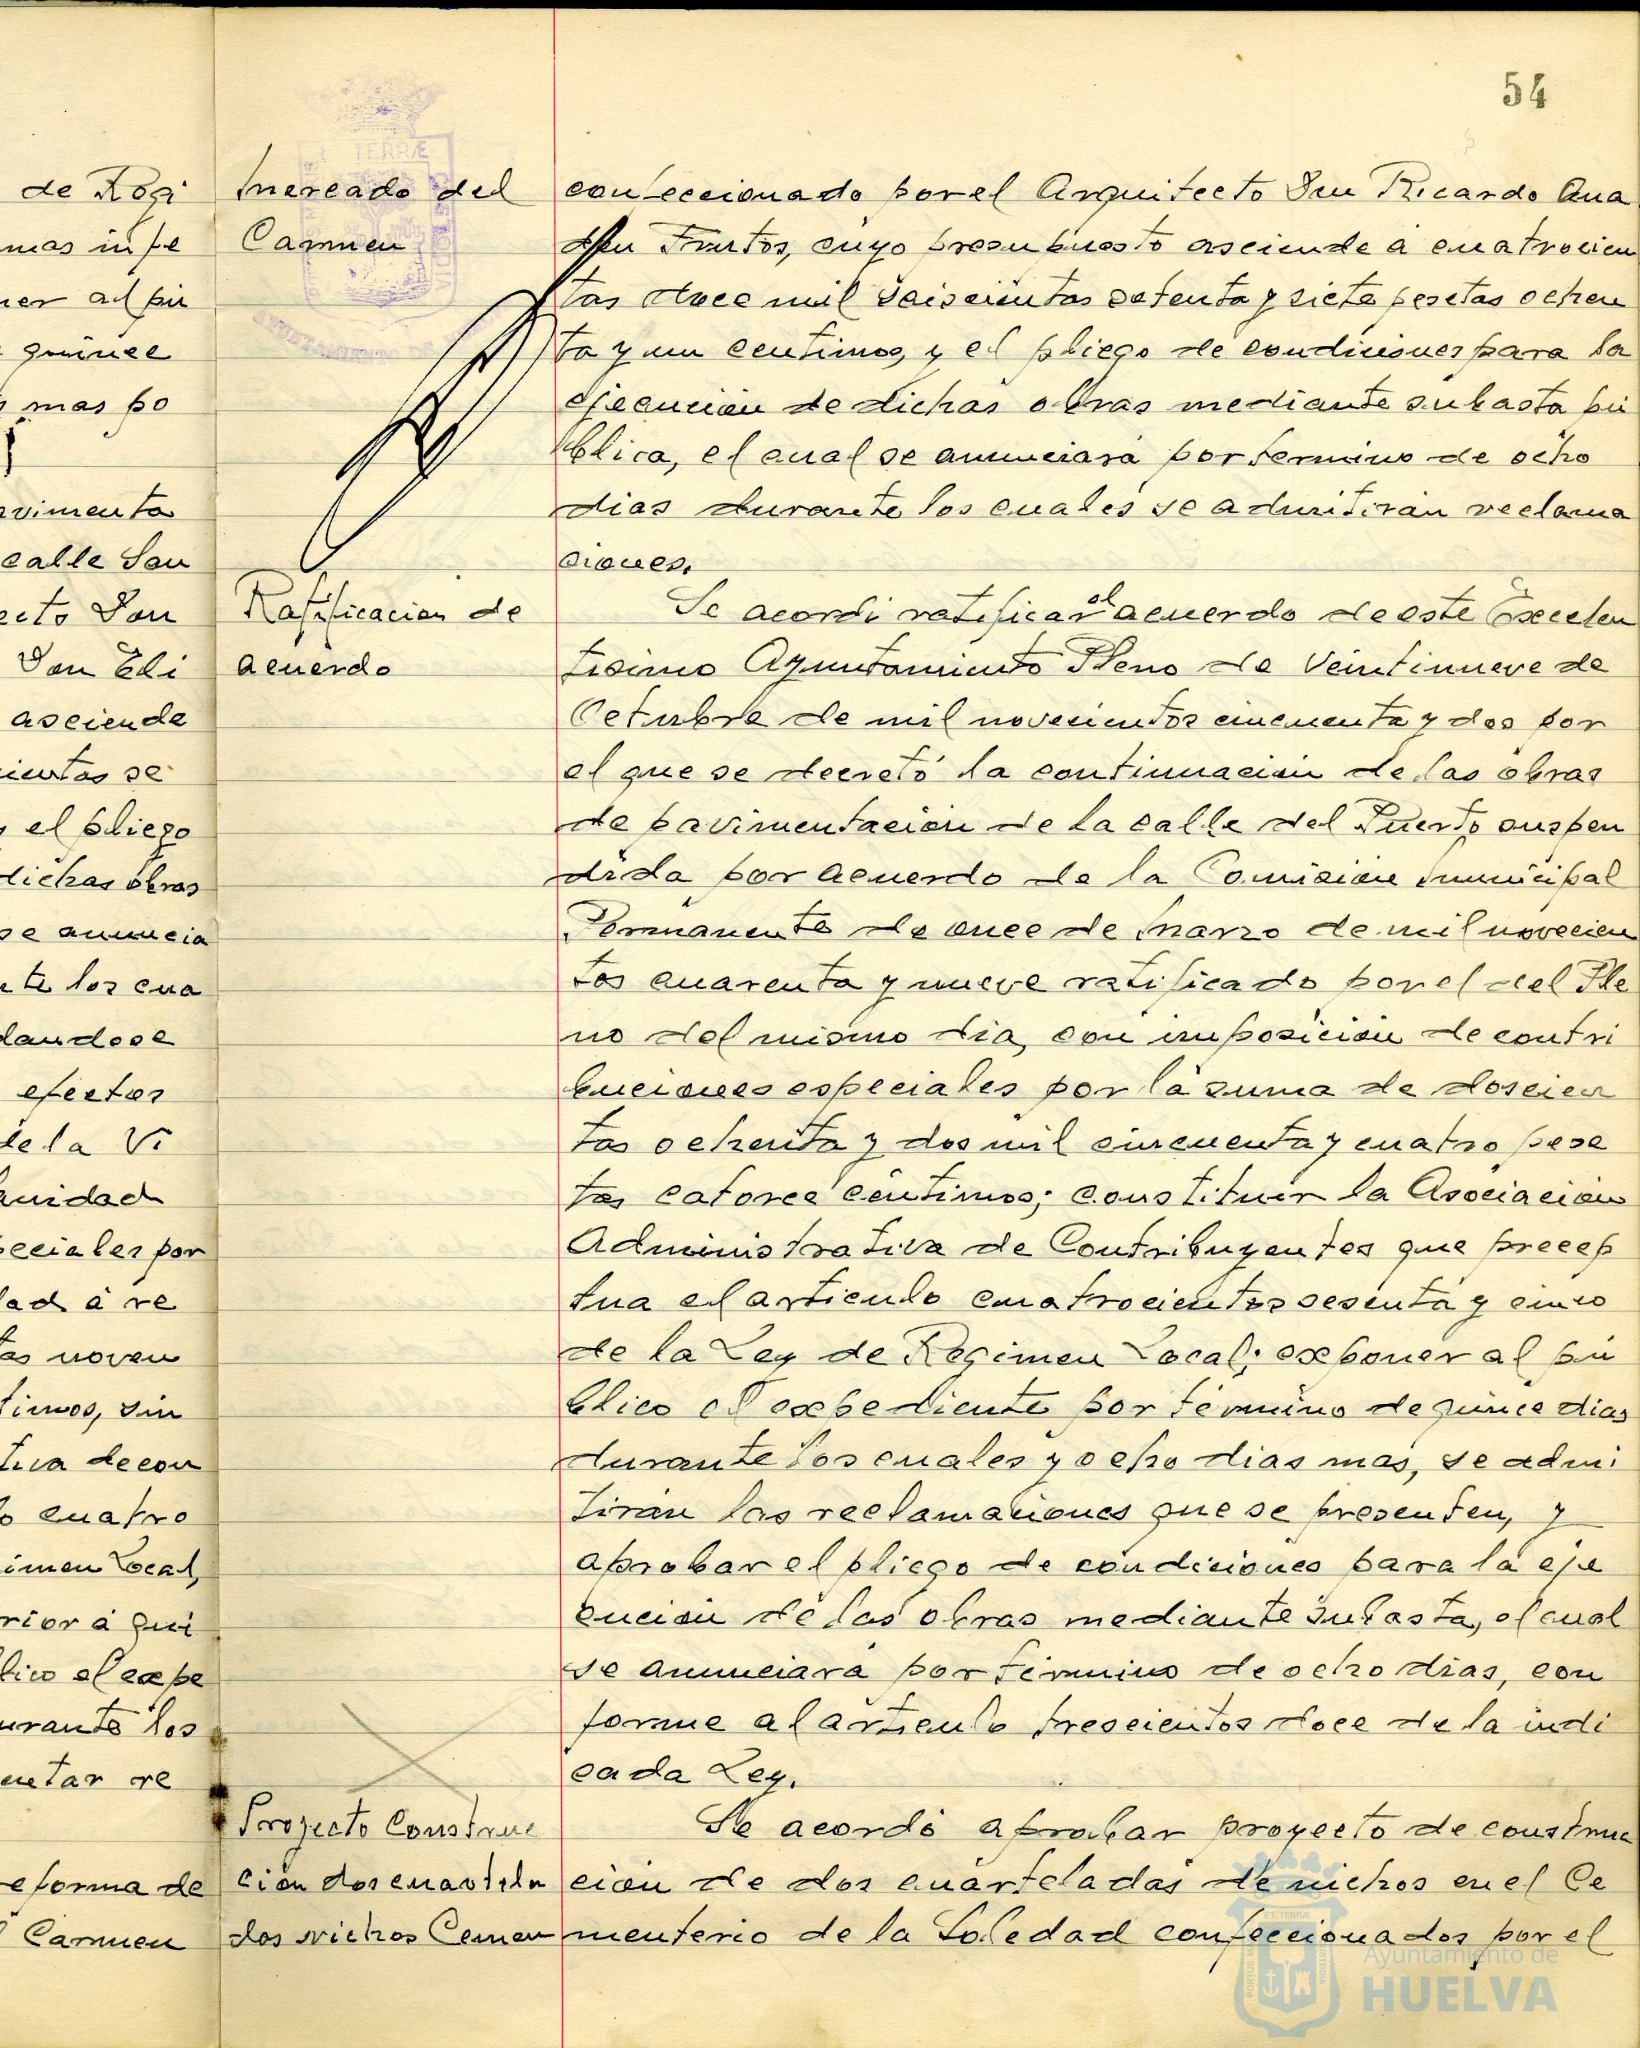 54
de Regi
mas in fe
ner al pú
quince
mas po
vimenta
calle San
ecto Don
Don Eli
asciende
cientas se
y el pliego
dichas obras
se anuncia
te los cua
dandose
efectos
de la Vi
anidad
peciales por
dad á re
tas noven
timos, sin
tiva de con
lo cuatro
imen Local,
rior á qui
blico el expe
urante los
entar re
eforma de
l Carmen
Mercado del
Carmen
Ratificacion de
acuerdo
Proyecto Construc
ción dos cuartela
dos nichos Cemen
TERRÆ
confeccionado por el Arquitecto Don Ricardo Ana
don Frutos, cuyo presupuesto asciende á cuatrocien
tas doce mil seiscientas setenta y siete pesetas ochen
ta y un centimos, y el pliego de condiciones para la
ejecución de dichas obras mediante subasta pú
blica, el cual se anunciará por termino de ocho
dias durante los cuales se admitirán reclama
ciones.
Se acordó ratificar el acuerdo de este Excelen
tisimo Ayuntamiento Pleno de Veintinueve de
Octubre de mil novecientos cincuenta y dos por
el que se decretó la continuación de las obras
de pavimentación de la calle del Puerto suspen
dida por acuerdo de la Comisión Municipal
Permanente de once de Marzo de mil novecien
tos cuarenta y nueve ratificado por el del Ple
no del mismo dia, con imposición de contri
buciones especiales por la suma de doscien
tas ochenta y dos mil cincuenta y cuatro pese
tas catorce céntimos; constituir la Asociación
Administrativa de Contribuyentes que precep
tua el articulo cuatrocientos sesenta y cinco
de la Ley de Regimen Local; exponer al pú
blico el expediente por término de quince dias
durante los cuales y ocho dias mas, se admi
tirán las reclamaciones que se presenten, y
aprobar el pliego de condiciones para la eje
cución de las obras mediante subasta, el cual
se anunciará por término de ocho dias, con
forme al articulo trescientos doce de la indi
cada Ley.
Se acordó aprobar proyecto de construc
ción de dos cuarteladas de nichos en el Ce
menterio de la Soledad confeccionados por el
Ayuntamiento de
HUELVA